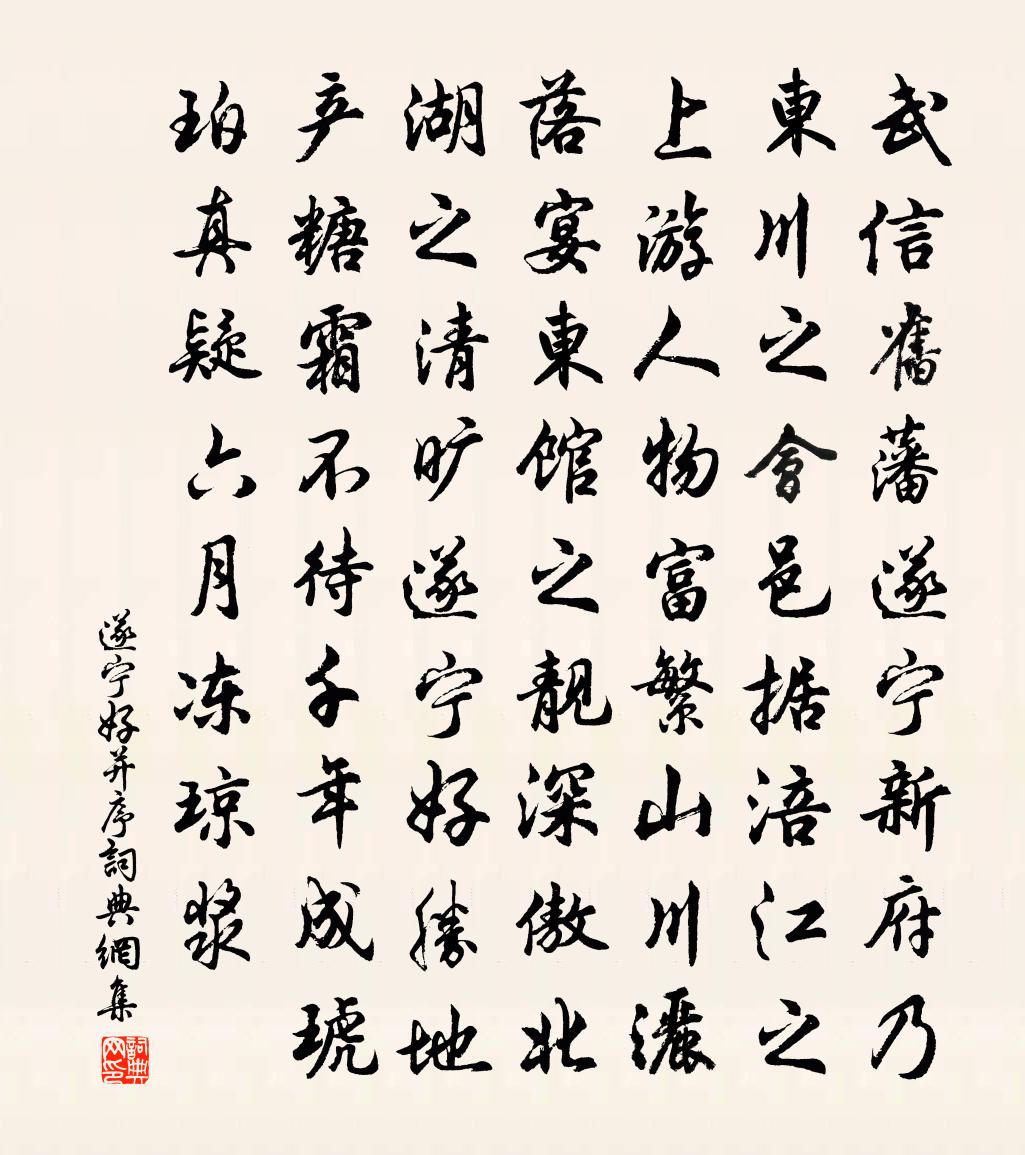 武信舊藩遂宁新府乃
東川之會邑據涪江之
上游人物富繁山川灑
落宴東館之靓深傲北
湖之清旷遂宁好勝地
产糖霜不待千年成琥
珀真疑六月冻琼浆
遂宁好并序詞典網集
詞典网印